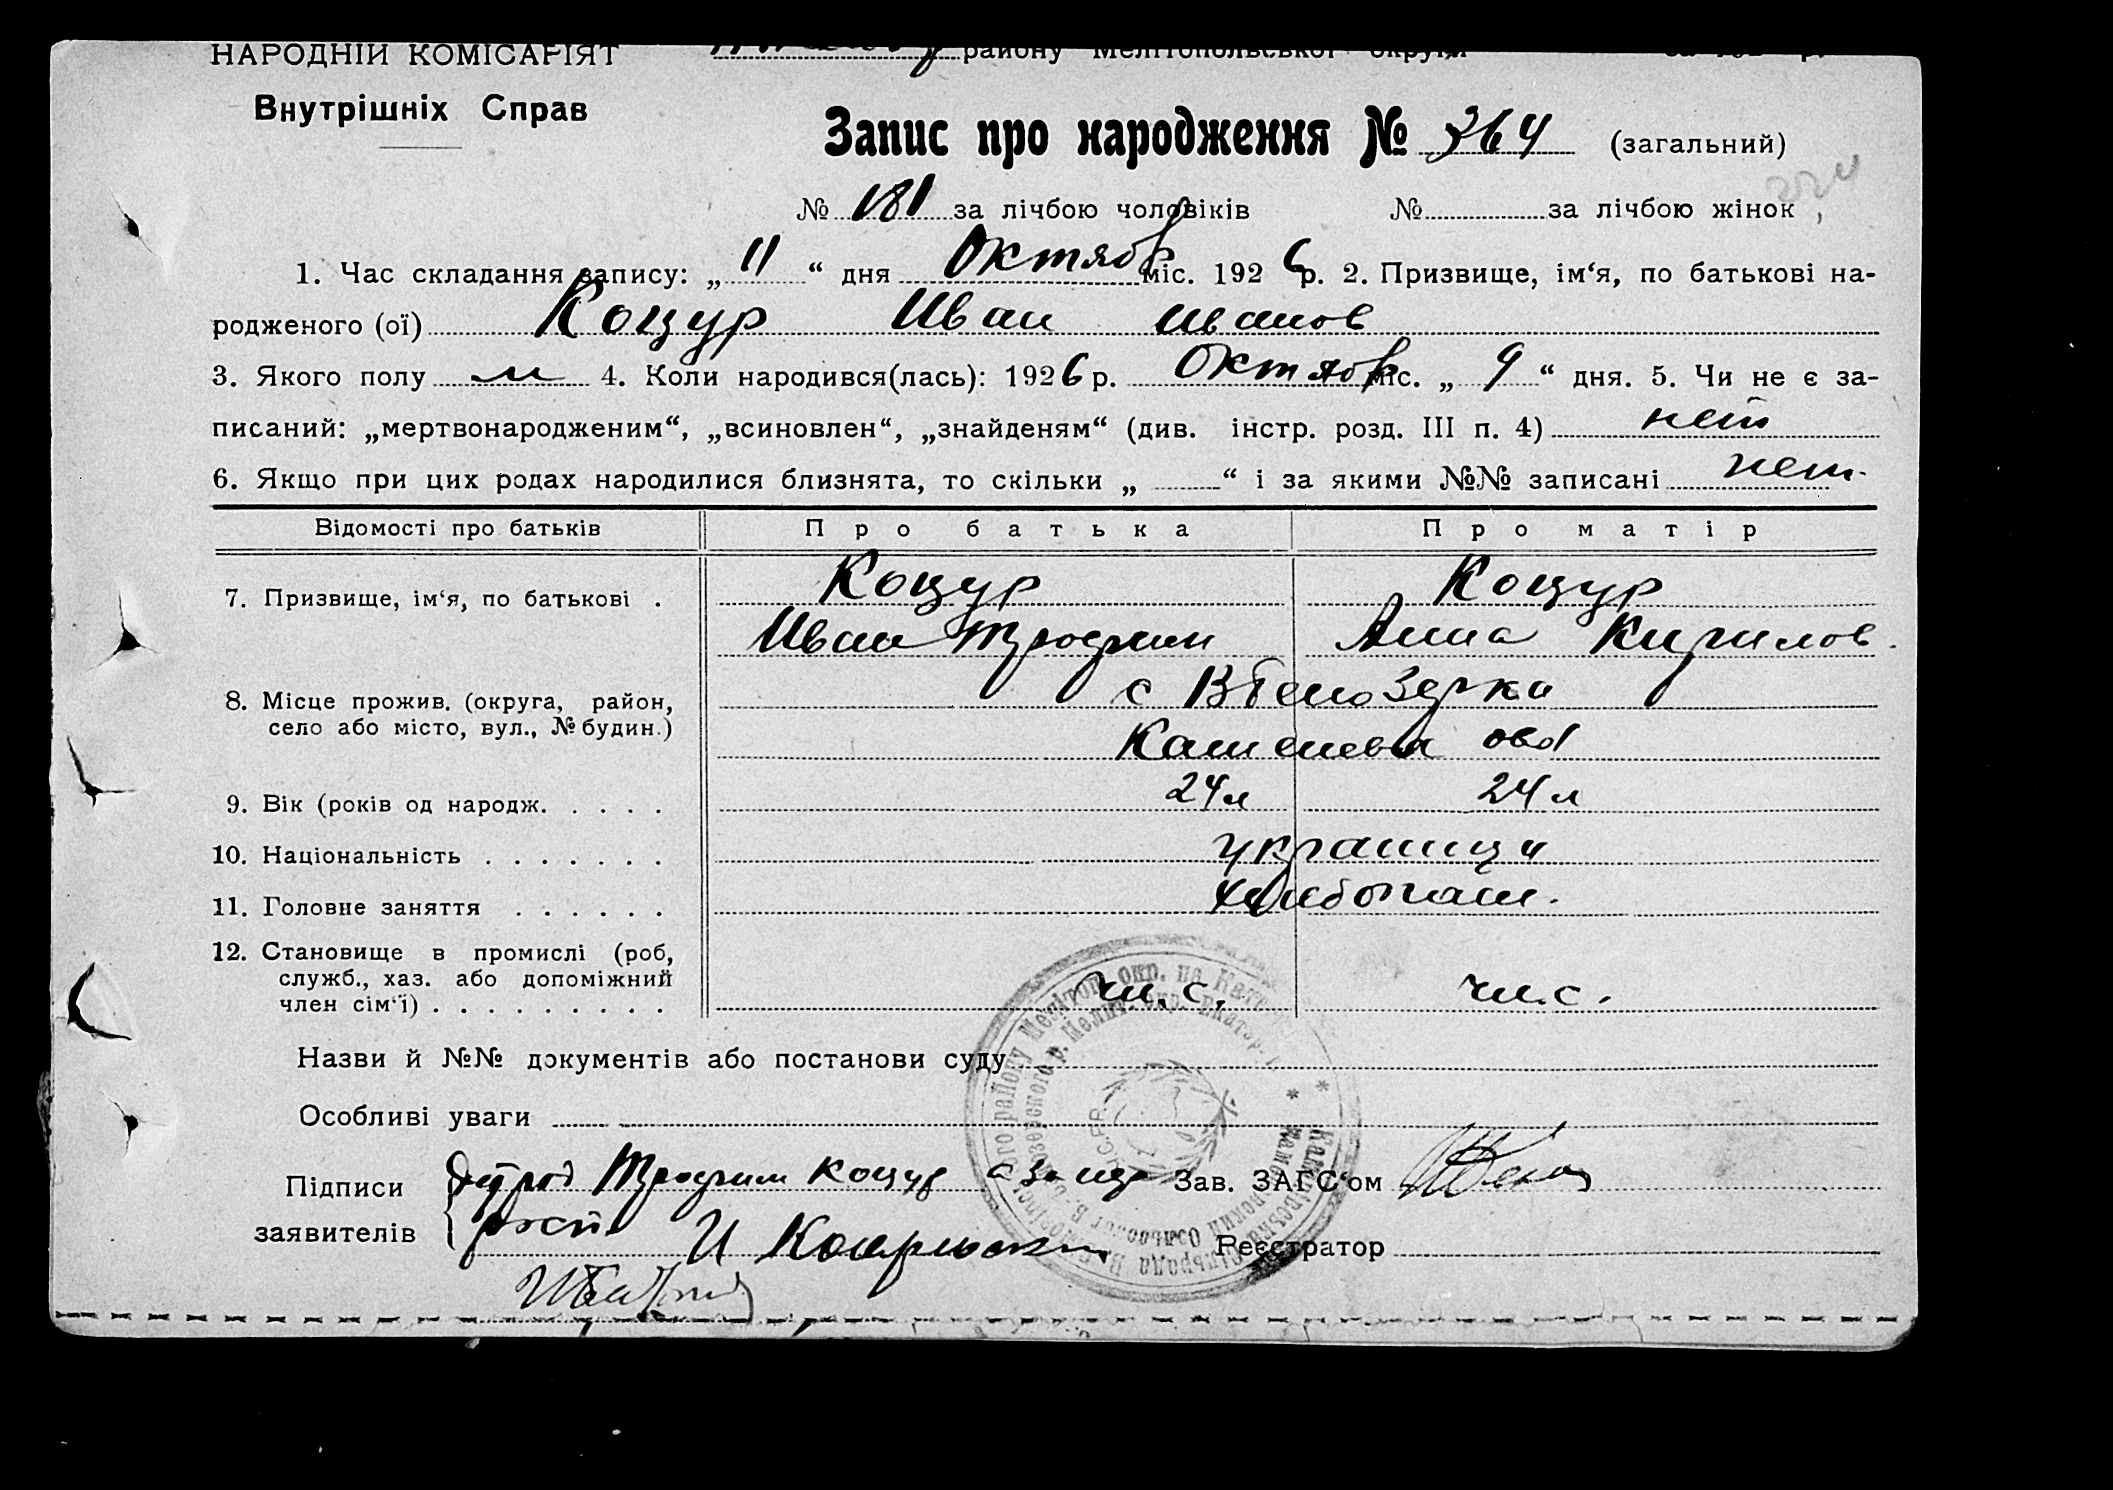 НАРОДНІЙ КОМІСАРІЯТ
району Мелітопольської округи
Внутрішніх Справ
Запис про народження № 364 (загальний)
№ 181 за лічбою чоловіків № за лічбою жінок
1. Час складання запису: „ 11 “ дня Октябр міс. 192 6 р. 2. Призвище, ім‘я, по батькові на-
родженого (ої) Коцур Иван Иванов
3. Якого полу м 4. Коли народився(лась): 1926 р. Октябр міс. „ 9 “ дня. 5. Чи не є за-
писаний: „мертвонародженим“, „всиновлен“, „знайденям“ (див. інстр. розд. III п. 4) нет
6. Якщо при цих родах народилися близнята, то скільки „ “ і за якими №№ записані нет
Відомості про батьків Про батька Про матір
7. Призвище, ім‘я, по батькові . Коцур Коцур
Иван Трофим Анна Кирилов.
8. Місце прожив. (округа, район, с ВБелозерка
село або місто, вул., № будин.)
9. Вік (років од народж. . . . . 24 л 24 л
10. Національність . . . . . . . украинци
11. Головне заняття . . . . . . хлебопаш.
12. Становище в промислі (роб,
служб., хаз. або допоміжний чл.с. чл.с.
член сім‘ї) . . . . . . . . .
Назви й №№ документів або постанови суду
Особливі уваги
Підписи Трофим Коцур а за Зав. ЗАГС‘ом
заявителів И Реєстратор